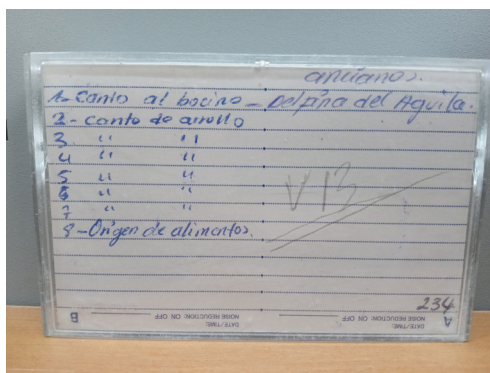 ancianos.
1- Canto al bocino - Delpina del Aguila.
2- canto de arrollo
3 " "
4 " "
5 " "
6 " "
7 " "
8-Origen de alimentos.
V13
234
B DATE/TIME: NOISE REDUCTION: ON OFF
A DATE/TIME: NOISE REDUCTION: ON OFF